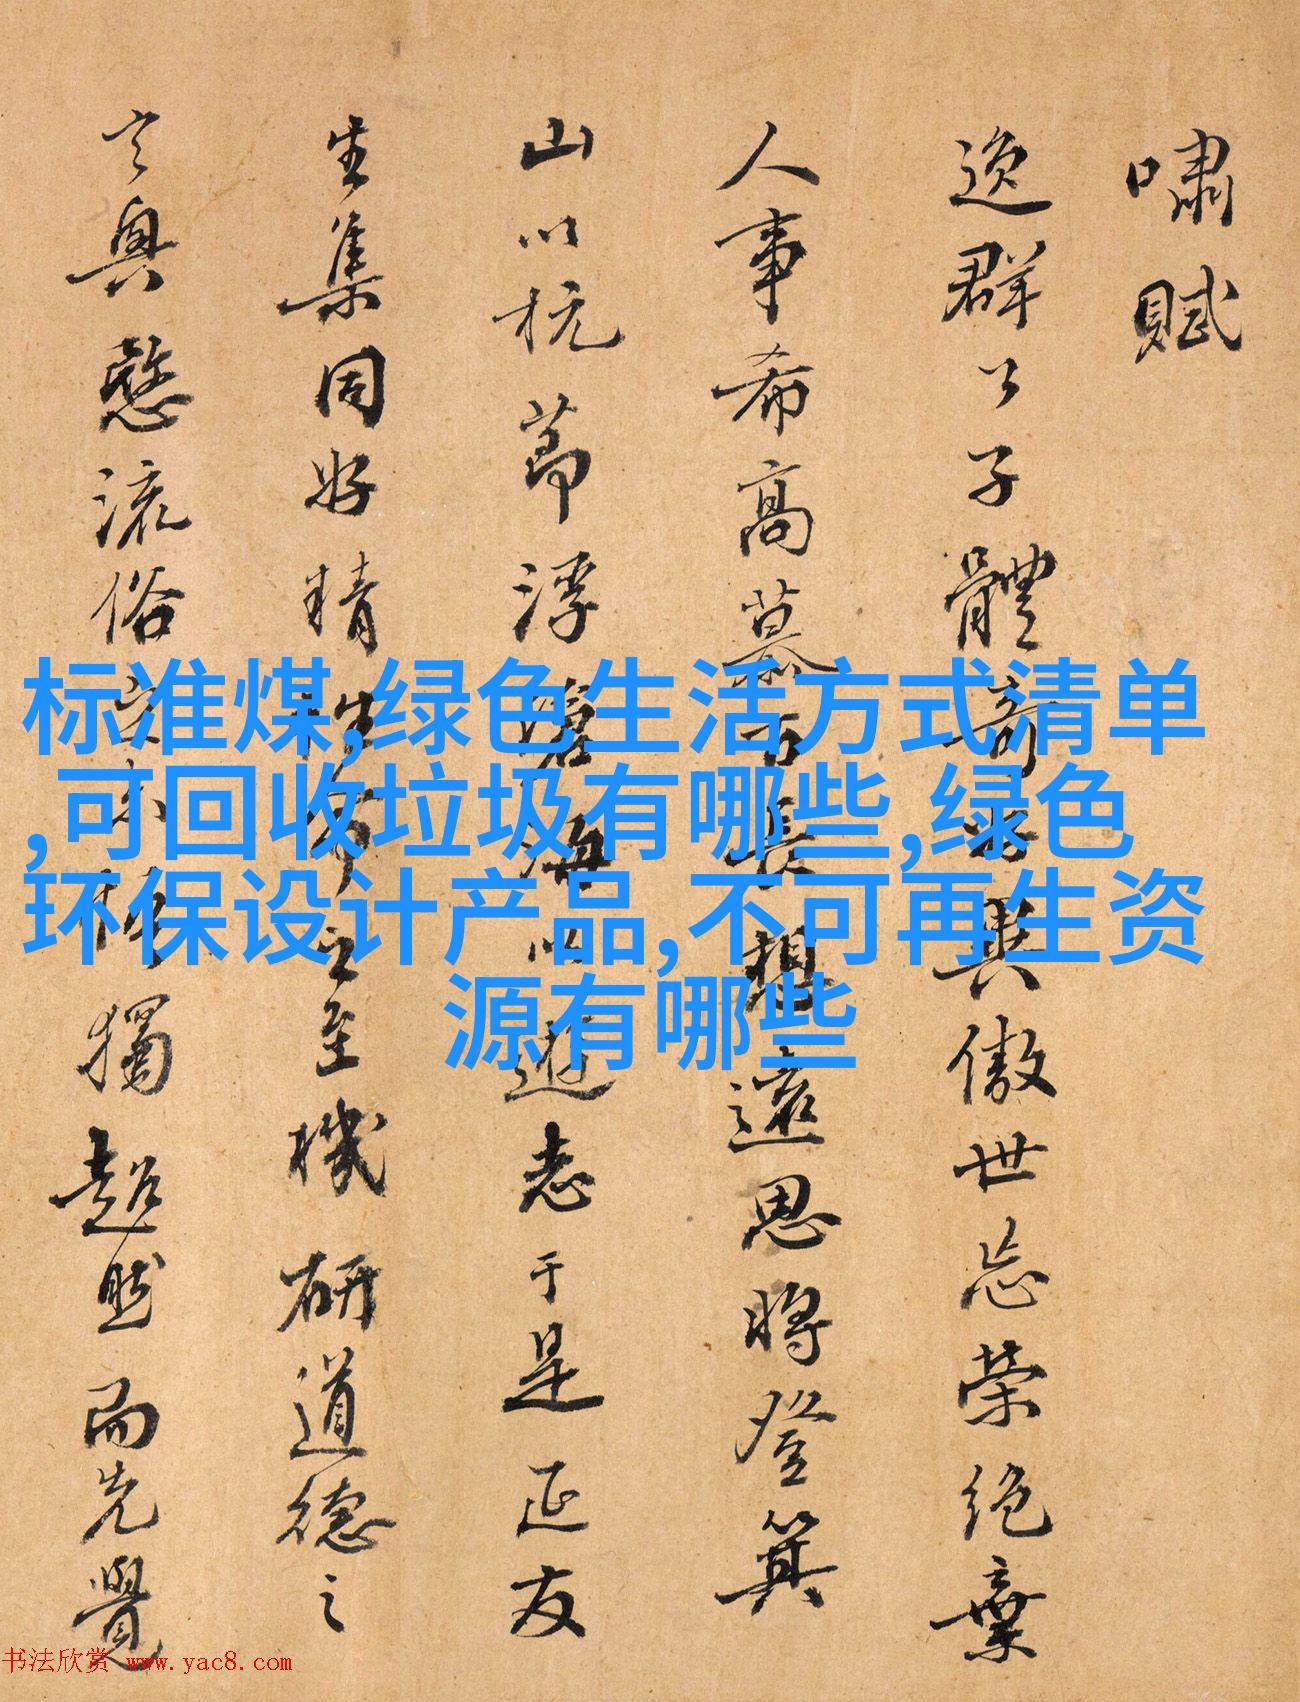 嘯賦
逸群公子體奇好異傲世忘榮絕棄
人事希高慕古長想遠思將登箕
山以抗節浮滄海以遊志于是延友
生集同好精性命之至機研道德之
玄奧愍流俗之未悟獨超然而先覺
标准煤,绿色生活方式清单
,可回收垃圾有哪些,绿色
环保设计产品,不可再生资
源有哪些
书法欣赏 www.yac8.com